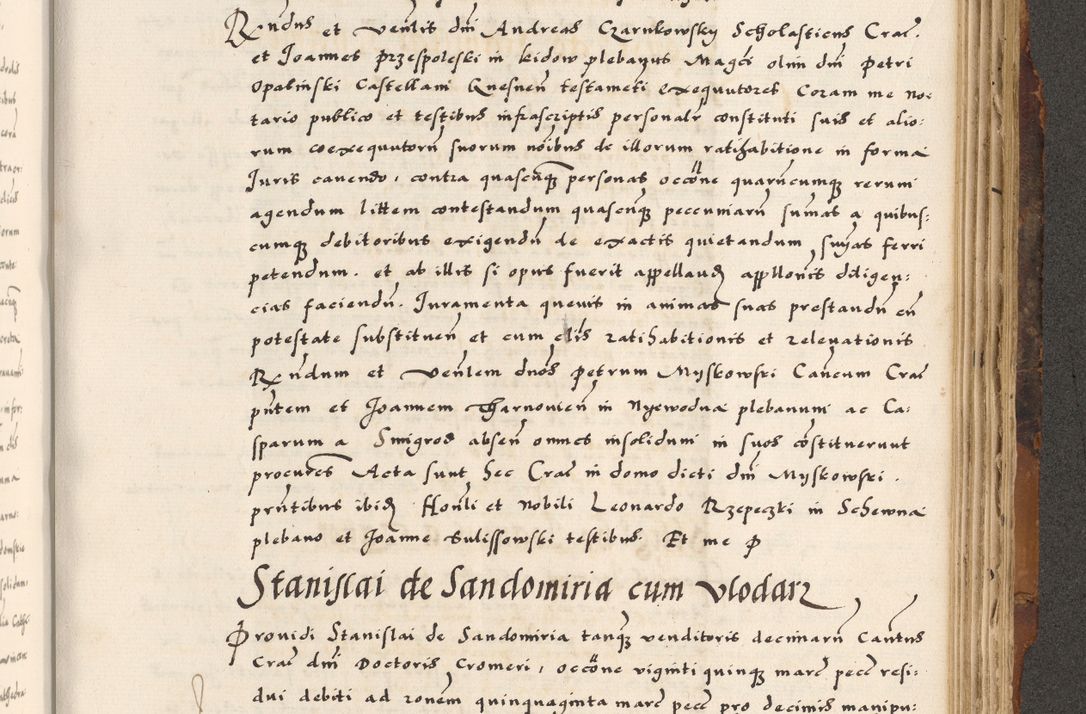 Rndus et venlis dni Andreas Czarnkowsky Scholasticus Crac.
et Joannes Przespoleski in kidow plebanus Magci olim dni Petri
Opalinski Castellani Gnesnen testameti exequutores Coram me no=
tario publico et testibus infrascriptis personalr constituti suis et alio:
rum coexequutoru suorum noibus de illorum ratihabitione in forma
Juris cavendo, contra quascunq personas occone quarucumq rerum
agendum littem contestandum quascunq pecuniaru sumas a quibus:
cumq debitoribus exigendu de exactis quietandum, suias ferri
petendum. et ab illis si opus fuerit appelland appllonis diligen:
cias faciendu. Juramenta quevis in animas suas prestandu cu
potestate substituen et cum aliis ratihabitionis et relevationis
Rndum et venlem dnos Petrum Myskowski Cancum Crac
pntem et Joannem Tharnovien in Nyewodna plebanum ac Ca:
sparum a Smigrod absen omnes insolidum in suos costituerunt
procures Acta sunt hec Crac in domo dicti dni Myskowski.
pntibus ibid Honli et Nobili Leonardo Rzepeczki in Schewna
plebano et Joanne Sulissowski testibus. Et me P
Stanislai de Sandomiria cum vlodarz
Providi Stanislai de Sandomiria tanq venditoris decimaru Cantus
Crac dni Doctoris Cromeri, occone viginti quinq marc pecc resi:
dui debiti ad ronem quinquaginta marc pecc pro decimis manipu: